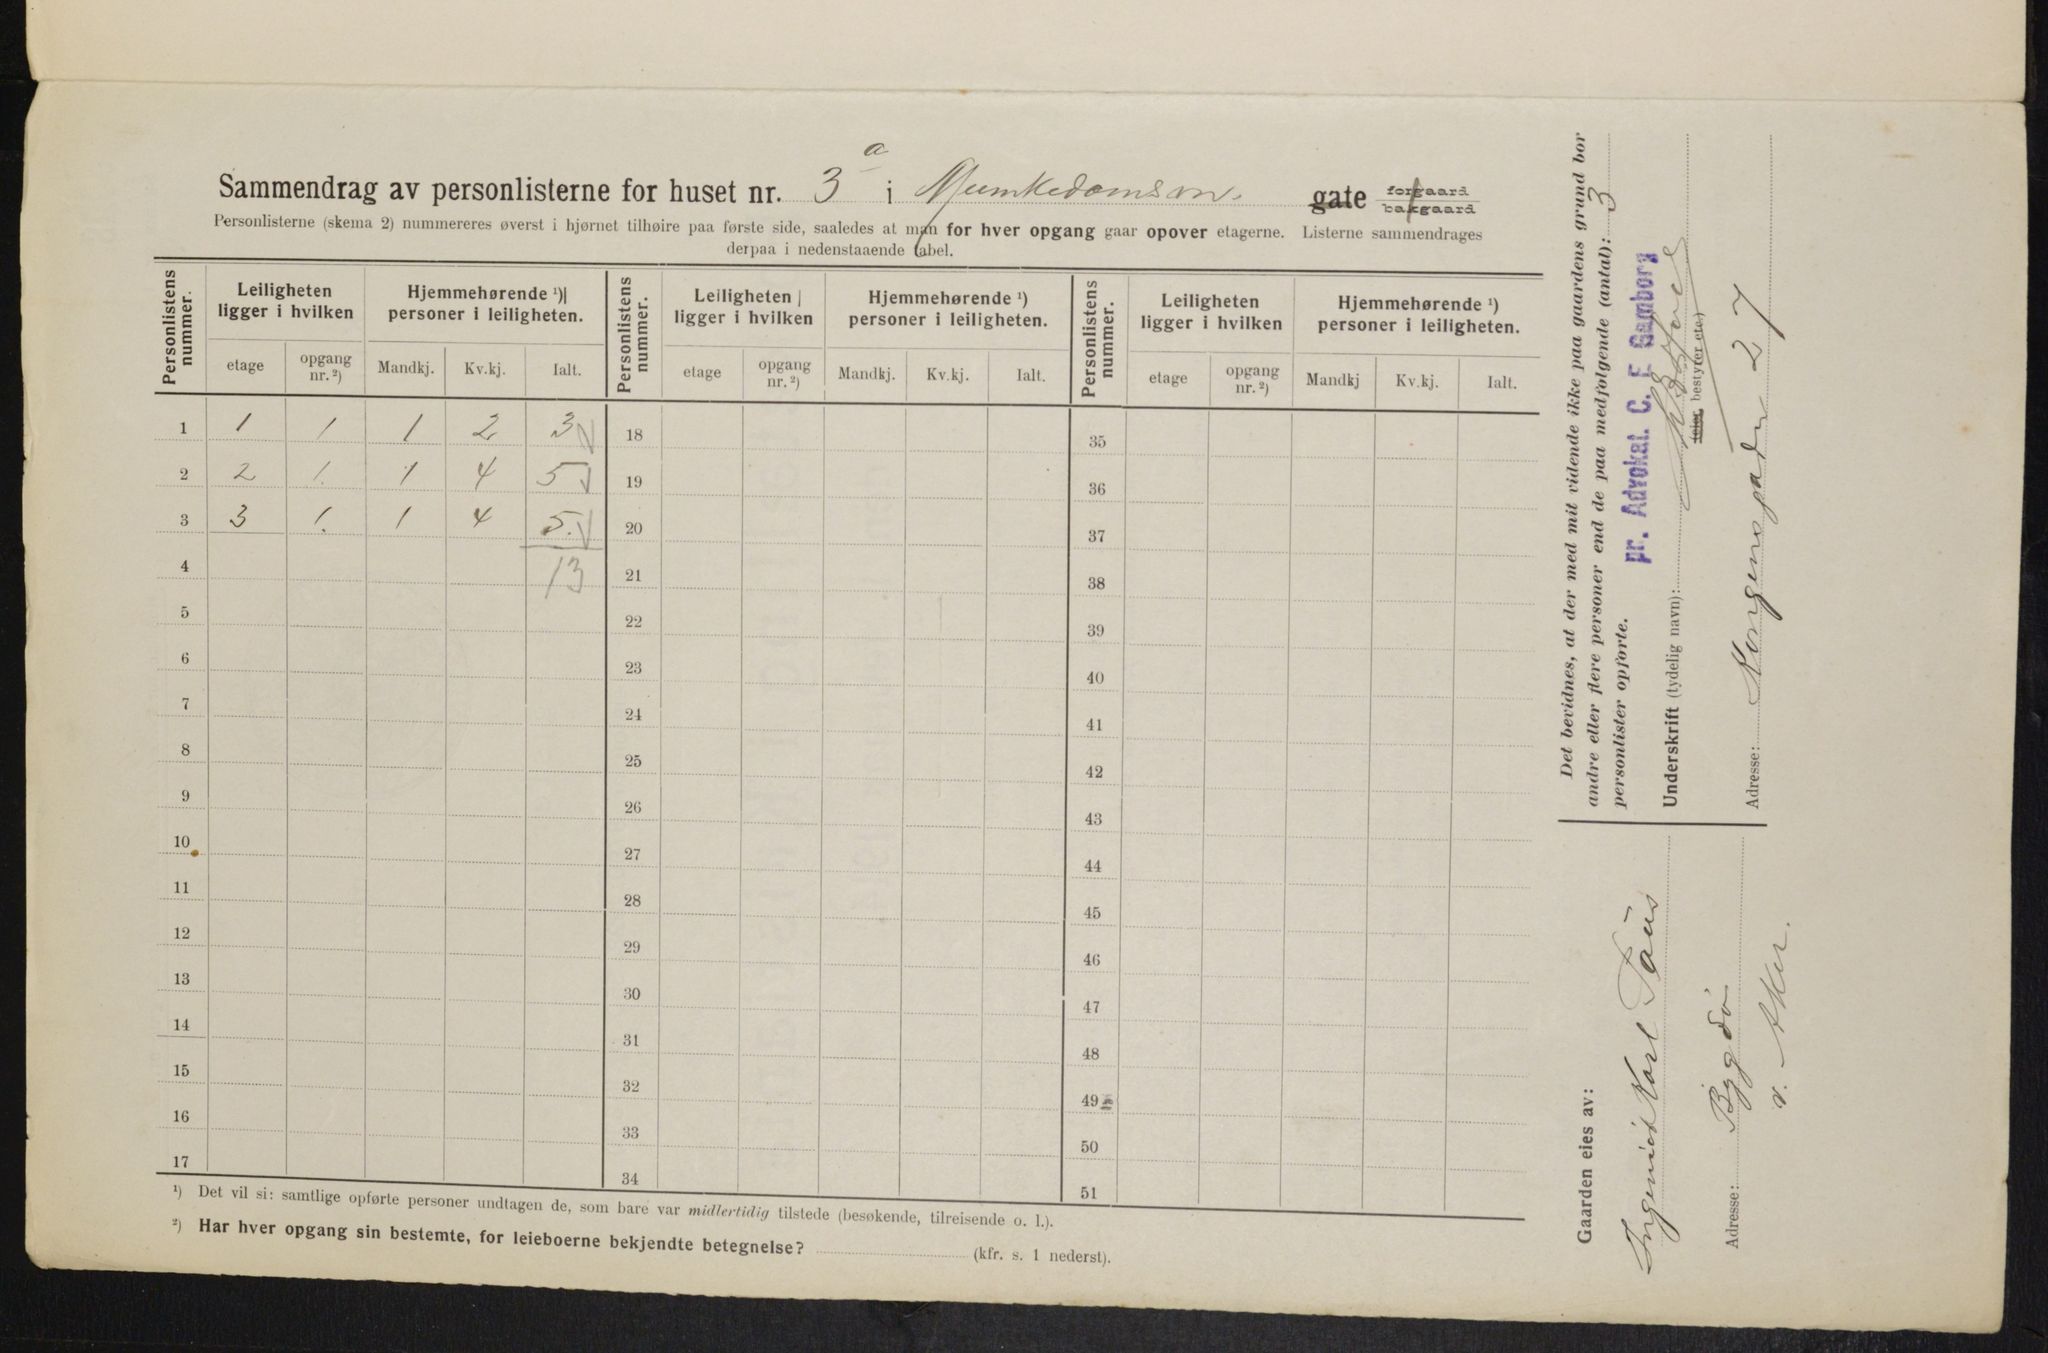 Sammendrag av personlisterne for huset nr. 3 a i Munkedamsvn. gate forgaard bakgaard
Personlisterne (skema 2) nummereres øverst i hjørnet tilhøire paa første side, saaledes at man for hver opgang gaar opover etagerne. Listerne sammendrages
derpaa i nedenstaaende tabel.
Personlistens nummer. Leiligheten ligger i hvilken Hjemmehørende ¹) personer i leiligheten. Personlistens nummer. Leiligheten ligger i hvilken Hjemmehørende ¹) personer i leiligheten. Personlistens nummer. Leiligheten ligger i hvilken Hjemmehørende ¹) personer i leiligheten.
etage opgang nr. ²) Mandkj. Kv.kj. Ialt. etage opgang nr. ²) Mandkj. Kv.kj. Ialt. etage opgang nr. ²) Mandkj Kv.kj. Ialt.
1 1 1 1 2 3 18 35
2 2 1. 1 4 5 19 36
3 3 1. 1 4 5. 20 37
4 13 21 38
5 22 39
6 23 40
7 24 41
8 25 42
9 26 43
10 27 44
11 28 45
12 29 46
13 30 47
14 31 48
15 32 49
16 33 50
17 34 51
¹) Det vil si: samtlige opførte personer undtagen de, som bare var midlertidig tilstede (besøkende, tilreisende o. l.).
²) Har hver opgang sin bestemte, for leieboerne bekjendte betegnelse? (kfr. s. 1 nederst).
Det bevidnes, at der med mit vidende ikke paa gaardens grund bor
andre eller flere personer end de paa medfølgende (antal): 3
personlister opførte.
pr. Advokat. C. F. Gamborg
Underskrift (tydelig navn):
(eier, bestyrer etc.)
Adresse: Kongensgaden 27
Gaarden eies av:
Ingeniør Karl Paus
Adresse: Bygdø
v. Aker.